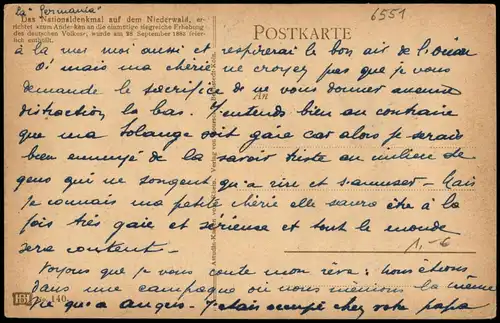 la "Germania"
6551
Das Nationaldenkmal auf dem Niederwald, er-
richtet „zum Andenken an die einmütige siegreiche Erhebung
des deutschen Volkes“, wurde am 28. September 1883 feier-
lich enthüllt.
POSTKARTE
An
à la mer moi aussi et respirerai le bon air de l'océan
Oí mais ma chérie ne croyez pas que je vous
demande le sacrifice de ne vous donner aucune
distraction là bas. J'entends bien au contraire
que ma Solange soit gaie car alors je serais
bien ennuyé de la savoir triste au milieu de
gens qui ne songent qu'à rire et s'amuser - Mais
je connais ma petite chérie elle saura être à la
fois très gaie et sérieuse et tout le monde
sera content -
1.-6
Voyons que je vous conte mon rêve : Nous étions
dans une campagne où nous menions la même
vie qu'à angers. J'étais occupé chez votre papa
Nr. 140.